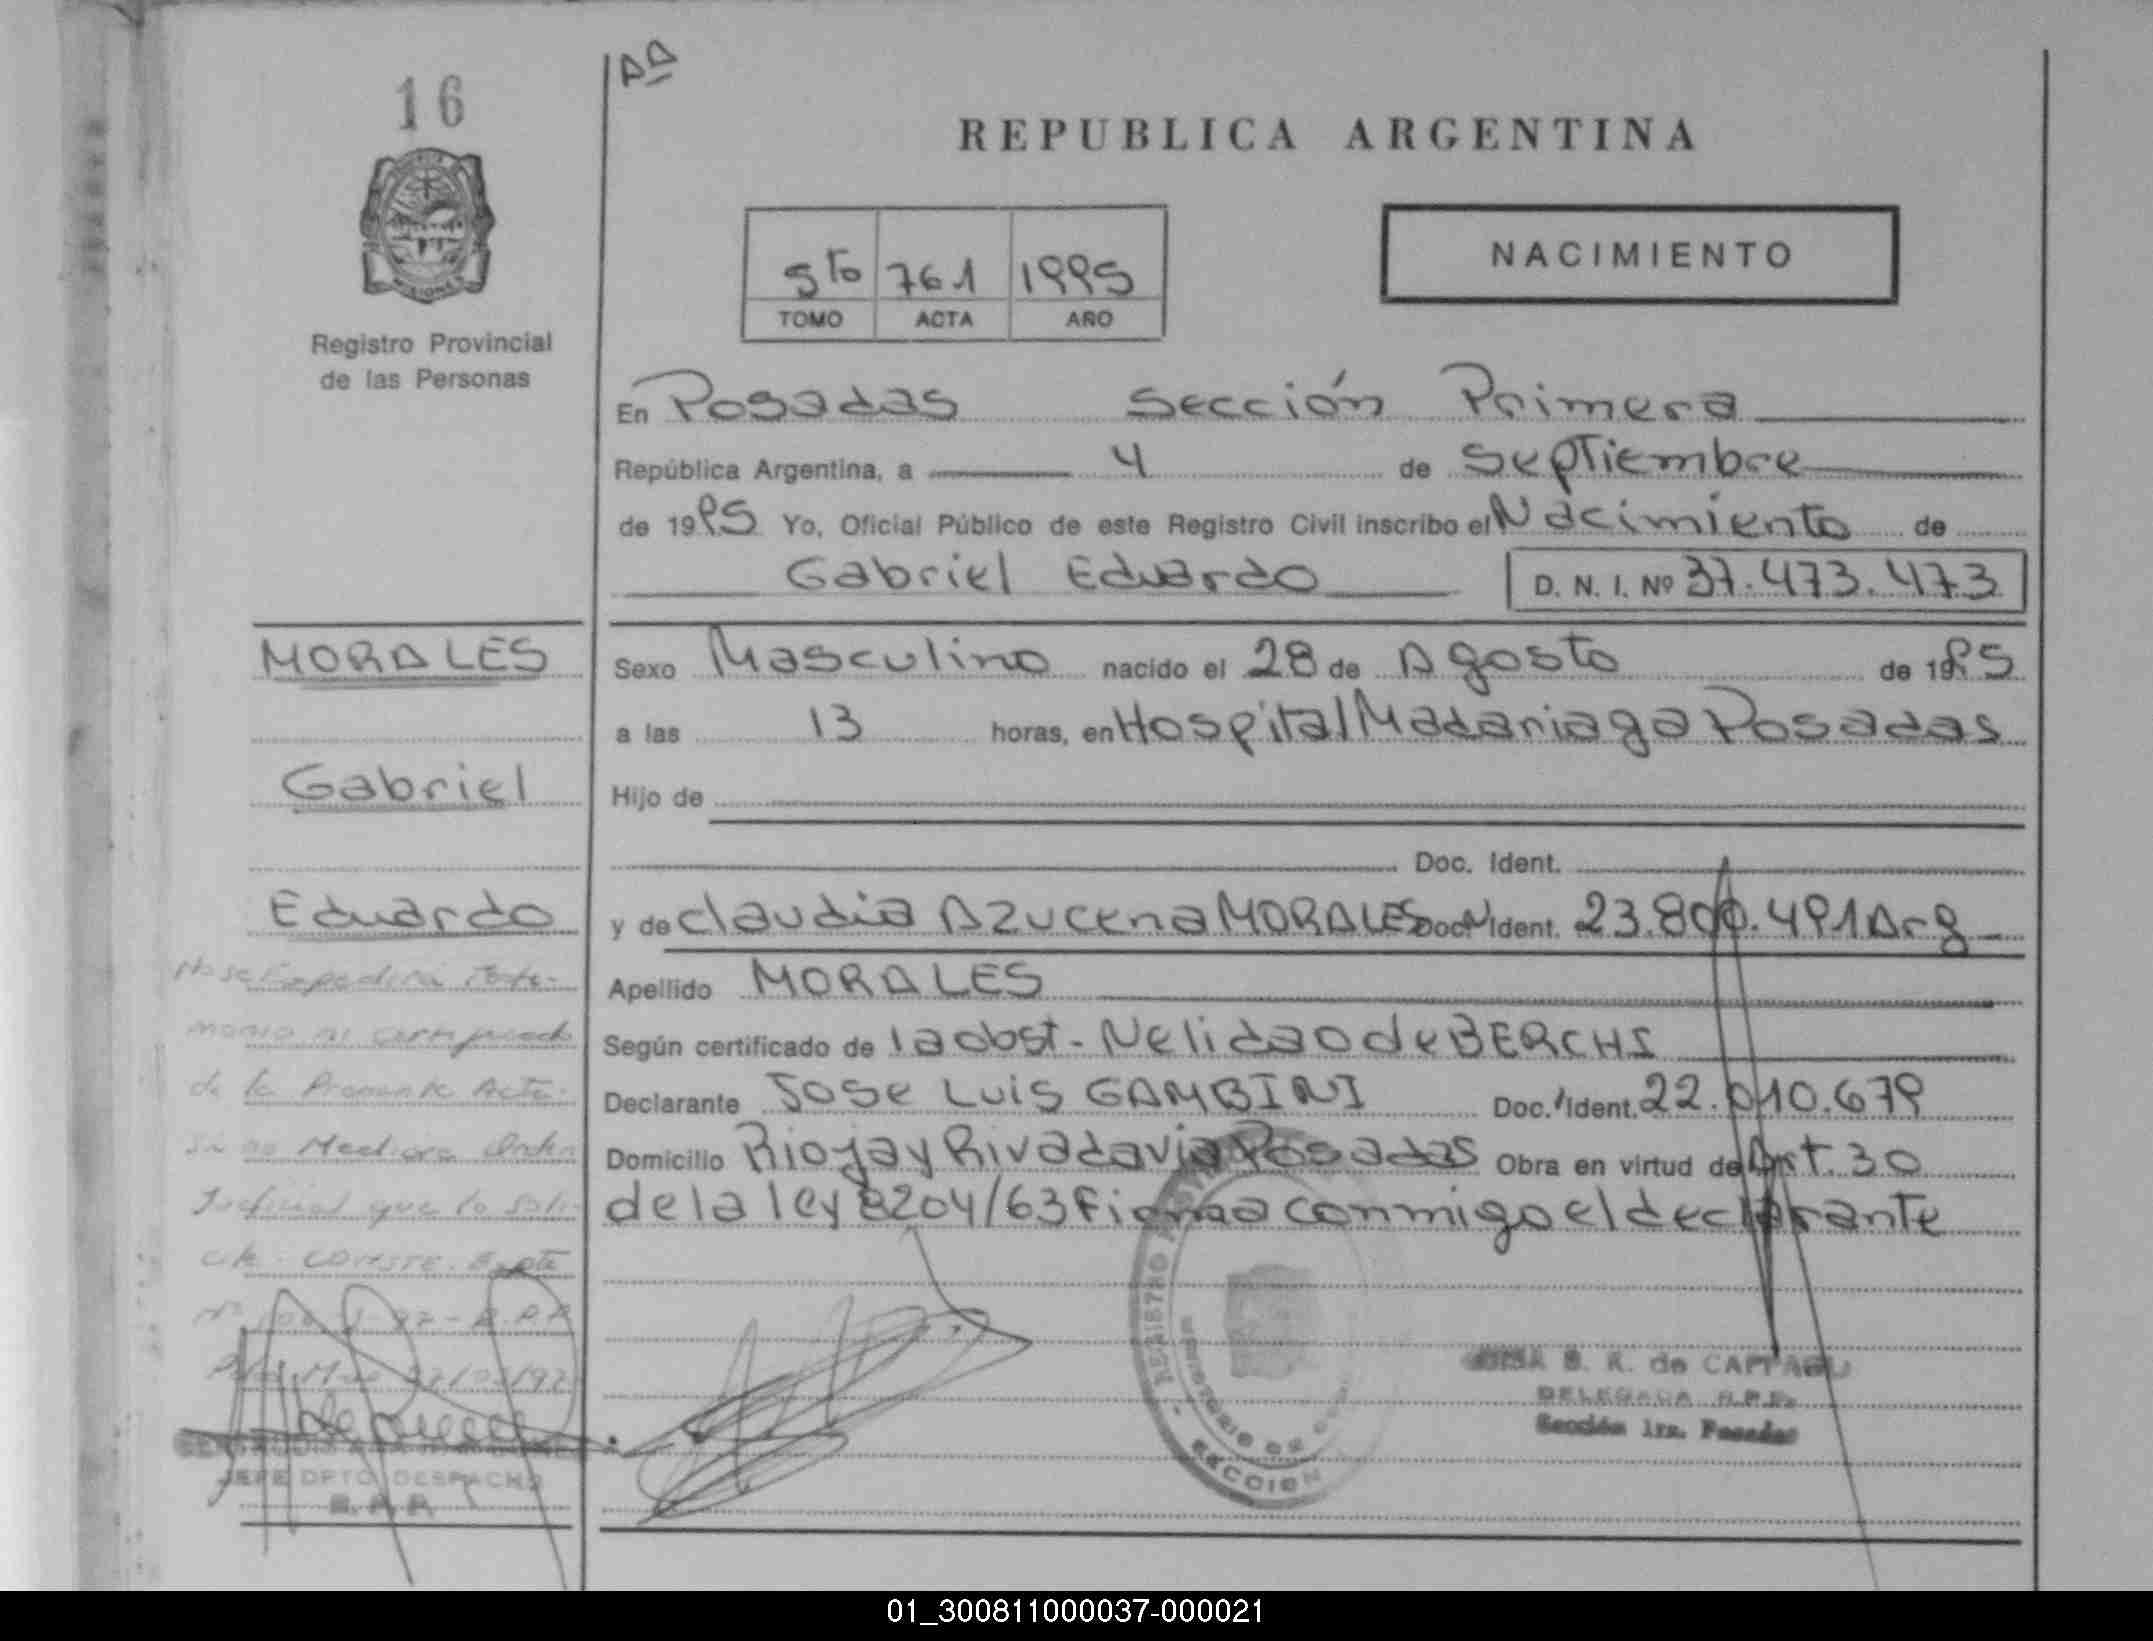 16
AA
REPUBLICA ARGENTINA
5to 761 1995
TOMO ACTA AÑO
NACIMIENTO
Registro Provincial
de las Personas
En Posadas Sección Primera
República Argentina, a 4 de Septiembre
de 1995 Yo, Oficial Público de este Registro Civil inscribo el Nacimiento de
Gabriel Eduardo D. N. I. Nº 37.473.473
MORALES
Gabriel
Eduardo
Sexo Masculino nacido el 28 de Agosto de 1995
a las 13 horas, en Hospital Madariaga Posadas
Hijo de
Doc. Ident.
y de Claudia Azucena MORALES Doc. Ident. 23.800.491 Arg
Apellido MORALES
Según certificado de la obst. Nelida O de BERCHI
Declarante Jose Luis GAMBINI Doc. Ident. 22.010.679
Domicilio Rioja y Rivadavia Posadas Obra en virtud del Art. 30
de la ley 8204/63 Firma conmigo el declarante
No se Expedirá Testi-
monio ni certificado
de la Presente Acta
si no Mediara Orden
Judicial que lo soli-
cite. CONSTE. Expte
JEFE DPTO DESPACHO
R. P. P.
REGISTRO
MINISTERIO DE
SECCION
S. R. de
DELEGADA R.P.P.
Sección 1ra. Posadas
01_300811000037-000021